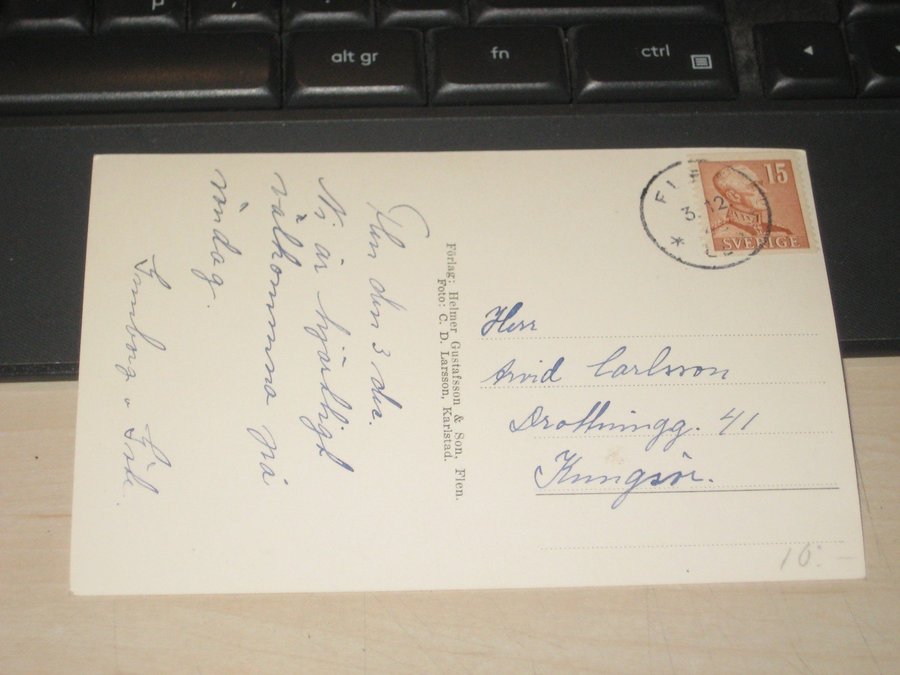 alt gr
fn
ctrl
15
SVERIGE
3.12
Herr
Arvid Carlsson
Drottningg. 41
Kungsör.
16:-
Förlag: Helmer Gustafsson & Son, Flen.
Foto: C. D. Larsson, Karlstad.
Flen den 3 dec.
Ni är hjärtligt
välkomna på
söndag.
Ingeborg o